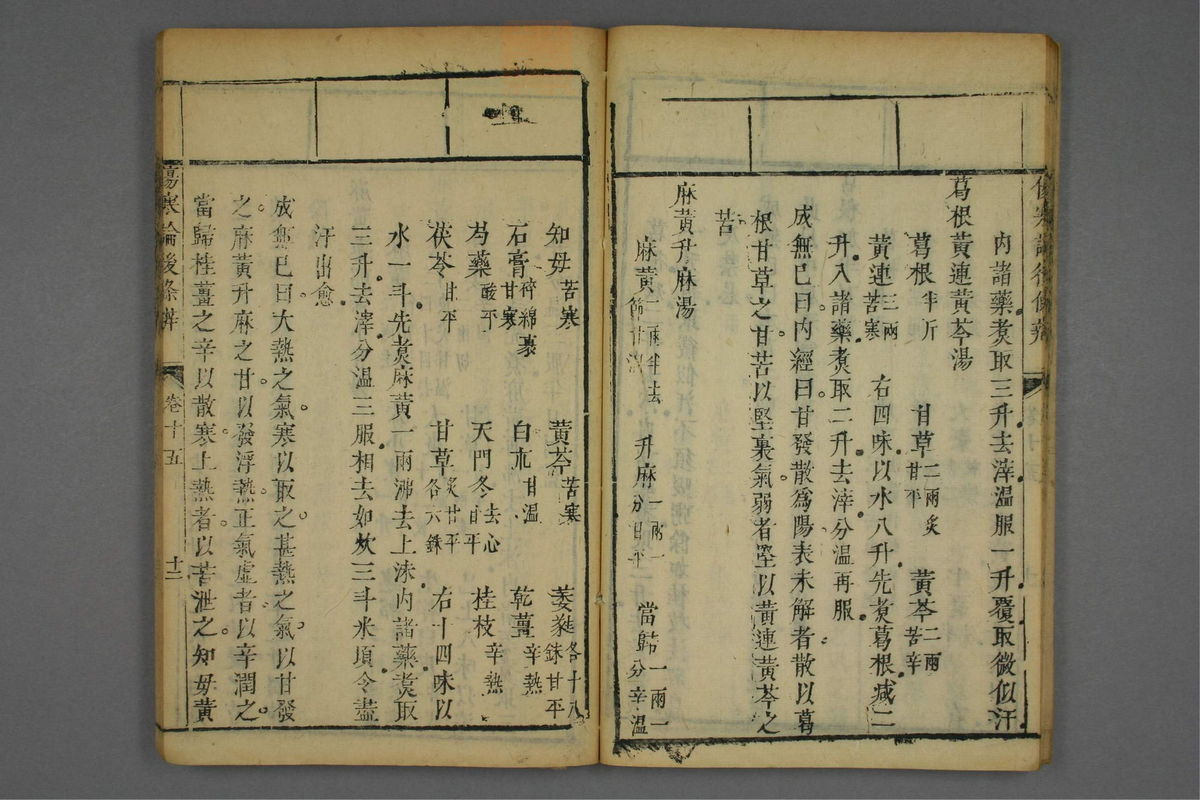 傷寒論後條辨
內諸藥煮取三升去滓溫服一升覆取微似汗
葛根黃連黃芩湯
葛根半斤　甘草二兩炙甘平　黃芩二兩苦辛
黃連三兩苦寒　右四味以水八升先煮葛根減二
升入諸藥煮取二升去滓分溫再服
成無巳曰內經曰甘發散爲陽表未解者散以葛
根甘草之甘苦以堅裏氣弱者堅以黃連黃芩之
苦
麻黃升麻湯
麻黃二兩半去節甘溫　升麻一兩一分甘平　當歸一兩一分辛溫
知母苦寒　黃芩苦寒　萎蕤各十八銖甘平
石膏碎綿裹甘寒　白朮甘溫　乾薑辛熱
芍藥酸平　天門冬去心甘平　桂枝辛熱
茯苓甘平　甘草炙甘平各六銖　右十四味以
水一斗先煮麻黃一兩沸去上沫內諸藥煮取
三升去滓分溫三服相去如炊三斗米頃令盡
汗出愈
成無巳曰大熱之氣寒以取之甚熱之氣以甘發
之麻黃升麻之甘以發浮熱正氣虛者以辛潤之
當歸桂薑之辛以散寒上熱者以苦泄之知母黃
傷寒論後條辨
卷十五
十二